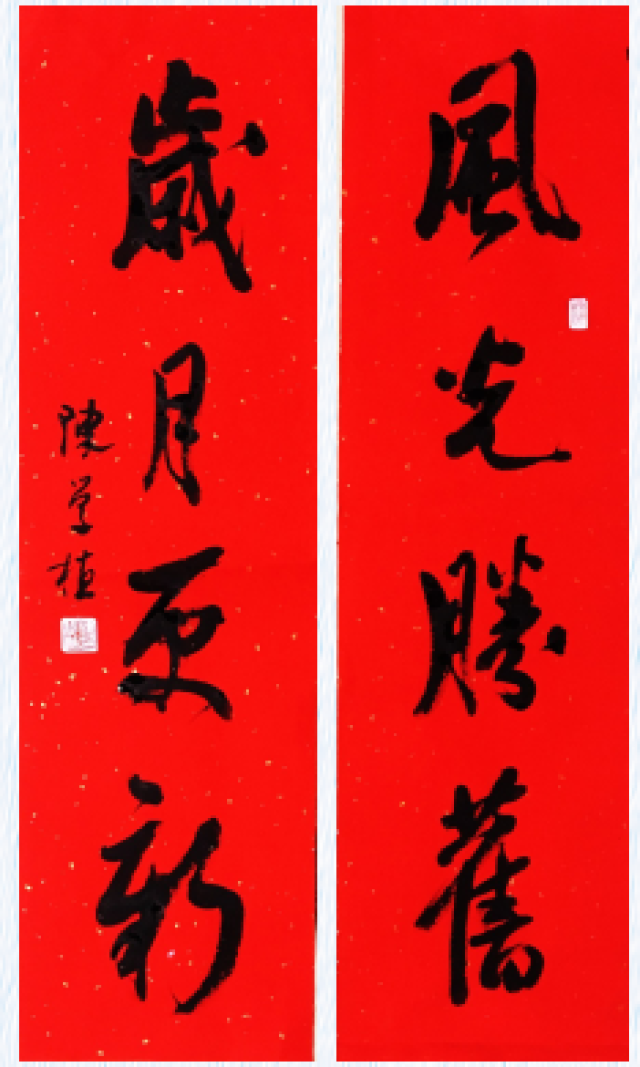 風光勝舊
歲月更新
陳学植